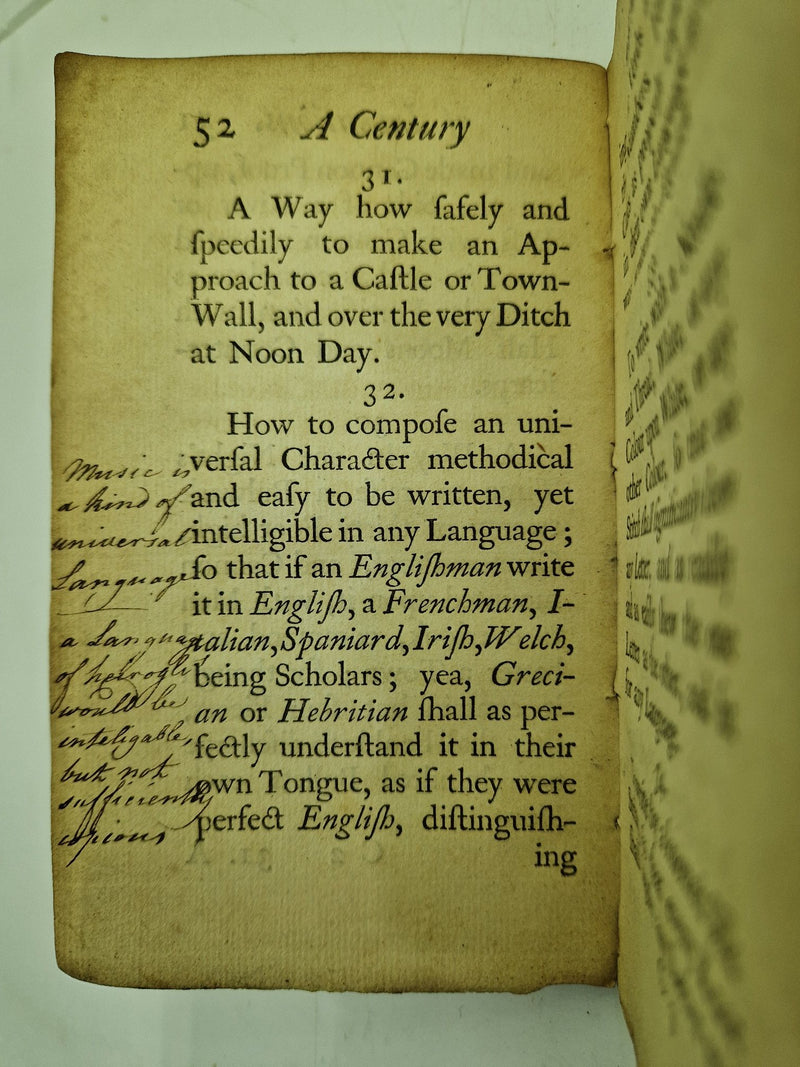 52 A Century
31.
A Way how ſafely and
ſpeedily to make an Ap-
proach to a Caſtle or Town-
Wall, and over the very Ditch
at Noon Day.
32.
How to compoſe an uni-
verſal Character methodical
and eaſy to be written, yet
intelligible in any Language;
ſo that if an Engliſhman write
it in Engliſh, a Frenchman, I-
talian, Spaniard, Iriſh, Welch,
being Scholars; yea, Greci-
an or Hebritian ſhall as per-
fectly underſtand it in their
own Tongue, as if they were
perfect Engliſh, diſtinguiſh-
ing
Music is
a kind of
universal
Language
a Language
of
would be
intelligable
but not
sufficiently
copious